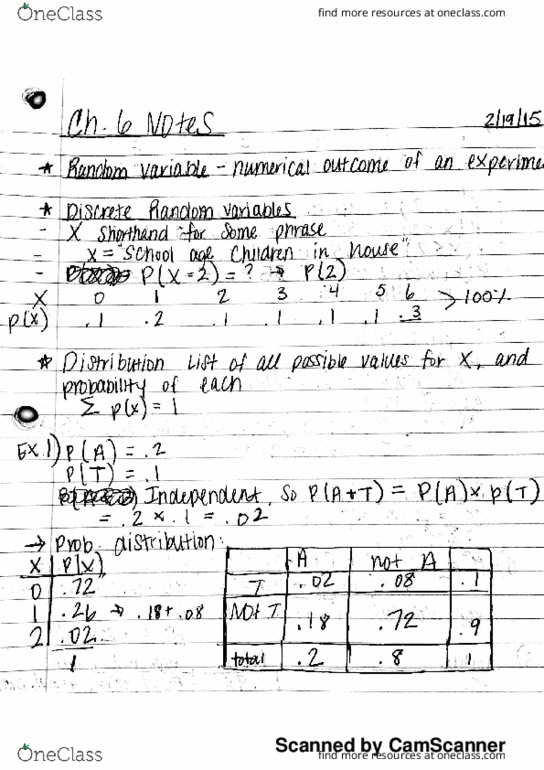 OneClass
find more resources at oneclass.com
Ch. 6 Notes
2/19/15
* Random variable - numerical outcome of an experime
* Discrete Random variables
- X shorthand for some phrase
- X = "School age children in house"
- P(X=2) = ? → P(2)
X 0 1 2 3 4 5 6 > 100%
P(X) .1 .2 .1 .1 .1 .1 .3
* Distribution List of all possible values for X, and
probability of each
Σ p(x) = 1
EX.1) P(A) = .2
P(T) = .1
Independent, So P(A+T) = P(A) x P(T)
= .2 x .1 = .02
→ Prob. distribution:
X P(X)
0 .72
1 .26 → .18 + .08
2 .02
1
A not A
T .02 .08 .1
Not T .18 .72 .9
total .2 .8 1
Scanned by CamScanner
OneClass
find more resources at oneclass.com